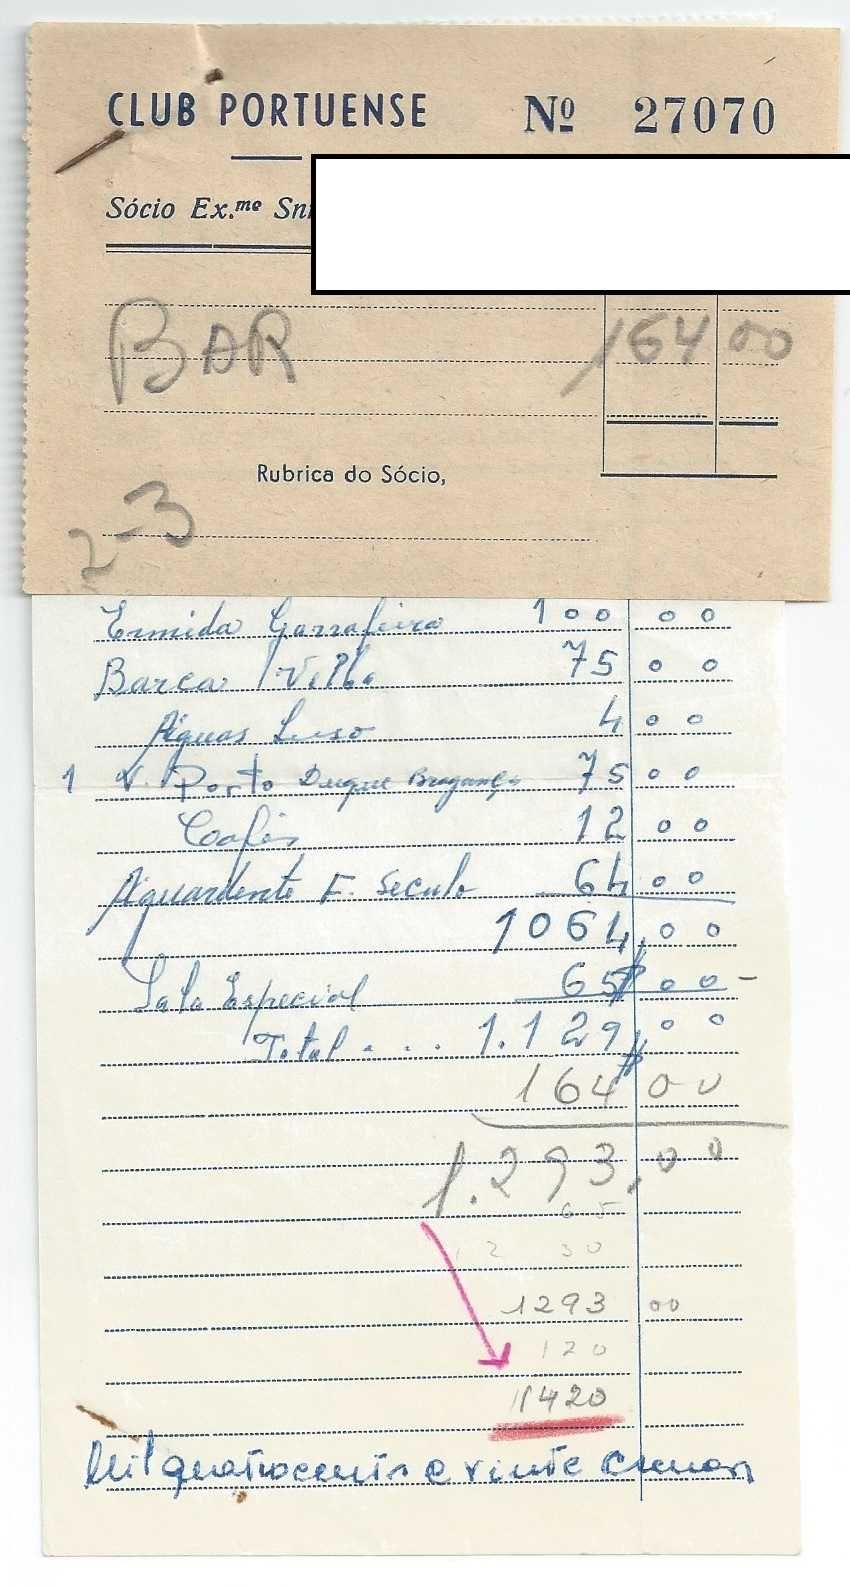 CLUB PORTUENSE Nº 27070
Sócio Ex.mo Snr
BAR 164 00
Rubrica do Sócio,
2-3
Ermida Garrafeira 100 00
Barca Velha 75 00
Aguas Luso 4 00
1 V. Porto Duque Bragança 75 00
Cafés 12 00
Aguardente F. Seculo 64 00
1064,00
Sala Especial 65$00-
Total . . . 1.129$00
164 00
1.293,00
65
12 30
1293 00
120
1420
Mil quatrocentos e vinte escudos